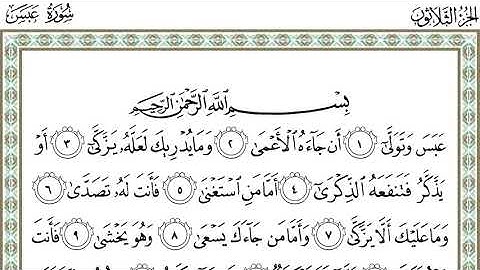 الجزء الثلاثون
سورة عبس
بِسْمِ اللَّهِ الرَّحْمَٰنِ الرَّحِيمِ
عَبَسَ وَتَوَلَّىٰ ١ أَن جَاءَهُ الْأَعْمَىٰ ٢ وَمَا يُدْرِيكَ لَعَلَّهُ يَزَّكَّىٰ ٣ أَوْ
يَذَّكَّرُ فَتَنفَعَهُ الذِّكْرَىٰ ٤ أَمَّا مَنِ اسْتَغْنَىٰ ٥ فَأَنتَ لَهُ تَصَدَّىٰ ٦
وَمَا عَلَيْكَ أَلَّا يَزَّكَّىٰ ٧ وَأَمَّا مَن جَاءَكَ يَسْعَىٰ ٨ وَهُوَ يَخْشَىٰ ٩ فَأَنتَ